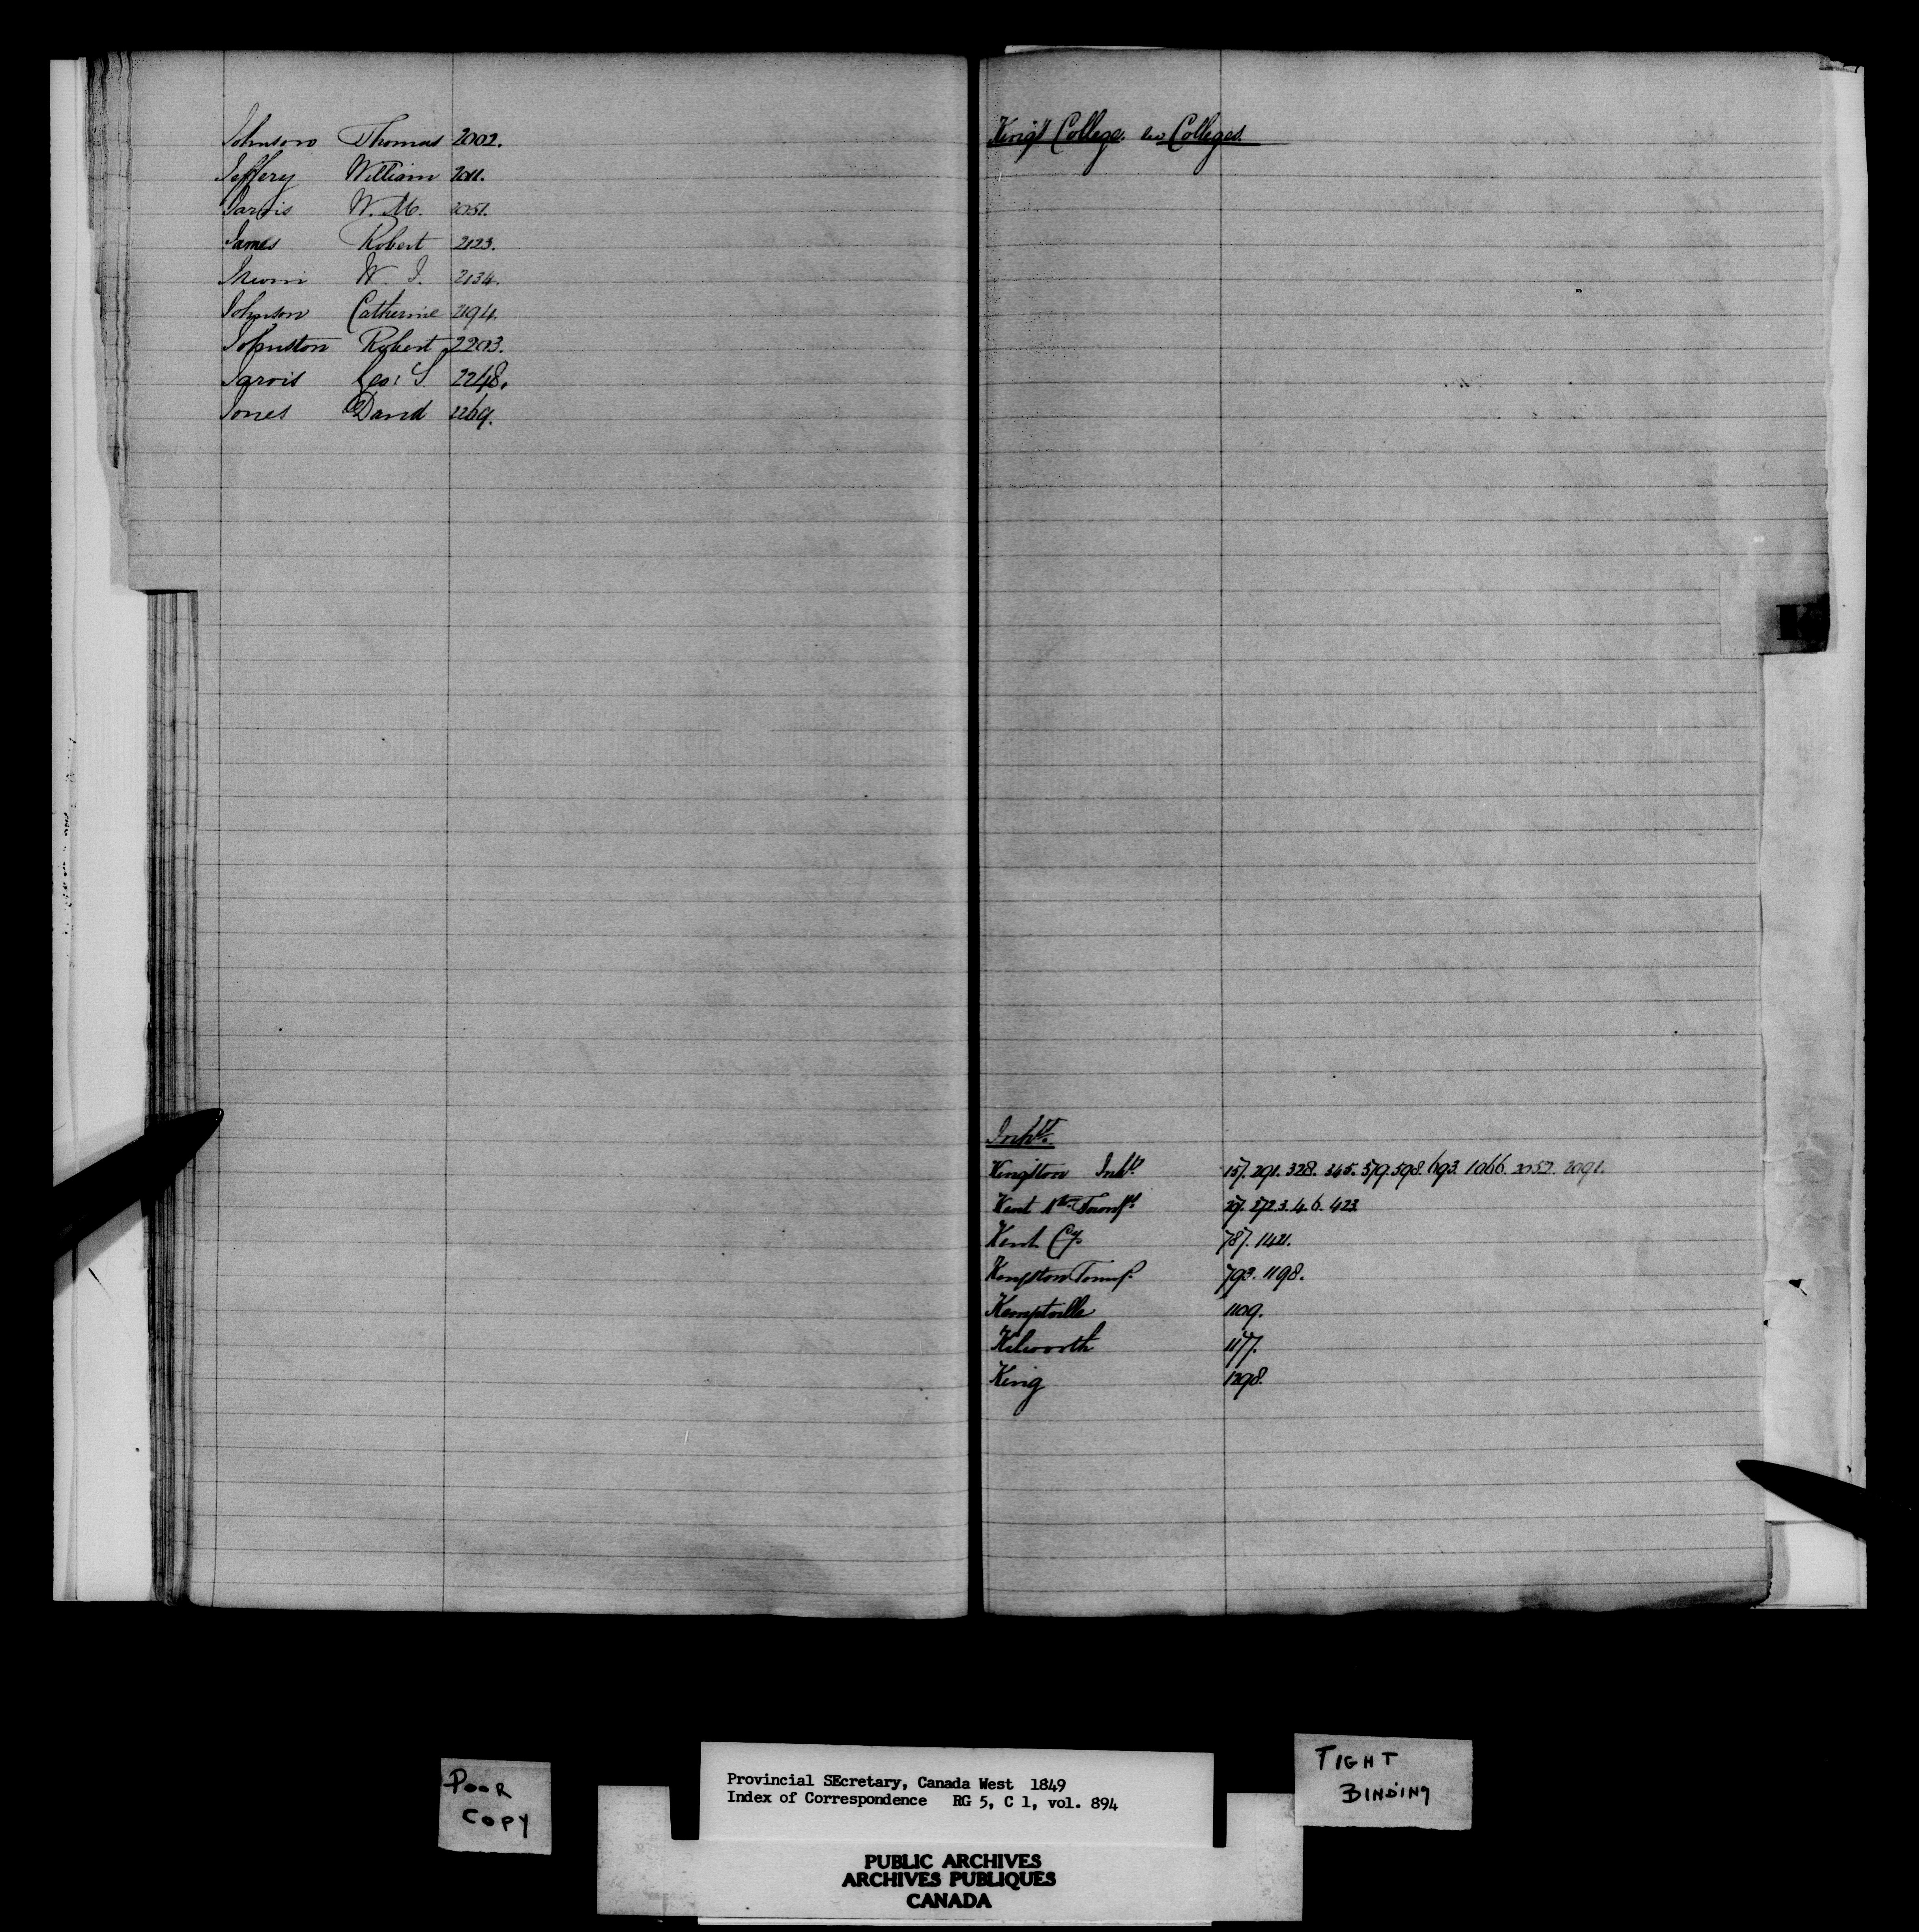 Johnson Thomas 2002.
Jeffery William 2011.
Jarvis W. M. 2051.
James Robert 2123.
Irwin W. J. 2134.
Johnson Catherine 2194.
Johnston Robert 2203.
Jarvis Geo: S 2248.
Jones David 2269.
King's College. see Colleges.
K
Inhts.
Kingston Inhts. 157. 291. 328. 345. 579. 598. 693. 1066. 2052. 2091.
Kent 272. 3. 4. 6. 423.
Kent Cy 787. 1421.
Kingston Townsp. 793. 1198.
Kemptville 1109.
Kilworth 1177.
King 1298.
POOR
COPY
Provincial SEcretary, Canada West 1849
Index of Correspondence RG 5, C 1, vol. 894
TIGHT
BINDING
PUBLIC ARCHIVES
ARCHIVES PUBLIQUES
CANADA